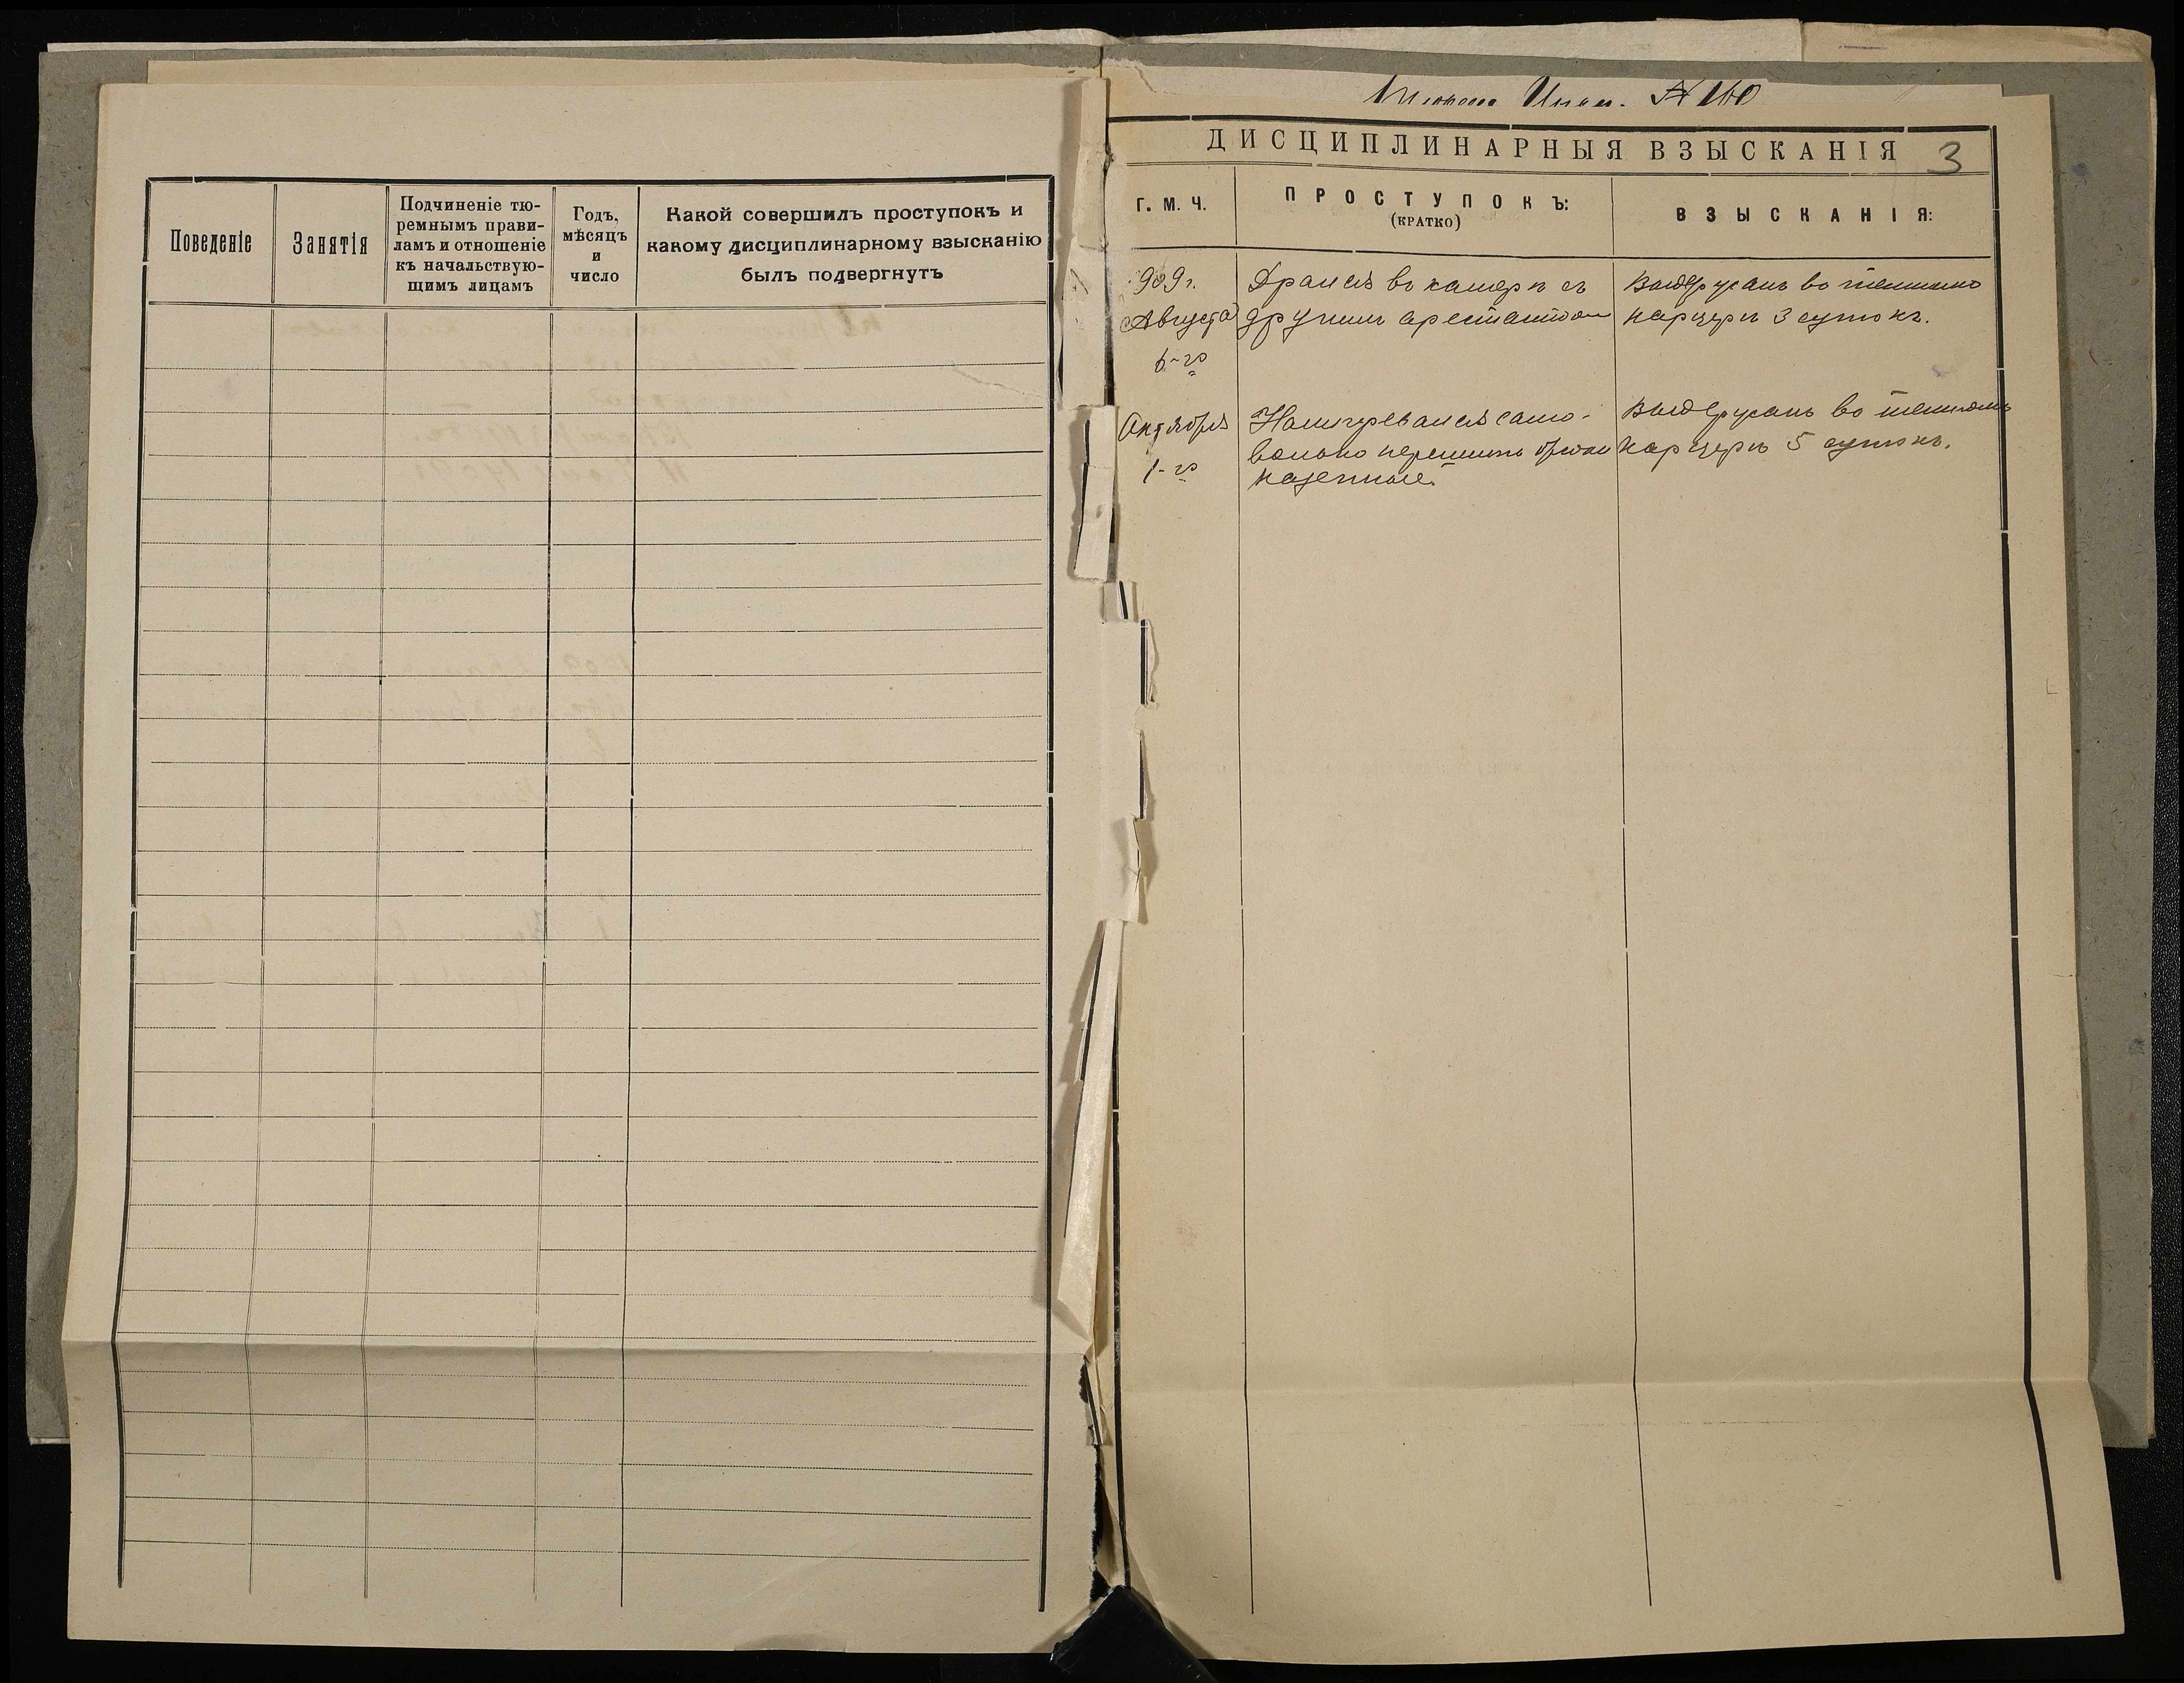 Поведеніе
Занятія
Подчиненіе тю-
ремнымъ прави-
ламъ и отношеніе
къ начальствую-
щимъ лицамъ
Годъ,
мѣсяцъ
и
число
Какой совершилъ проступокъ и
какому дисциплинарному взысканію
былъ подвергнутъ
№ 160
ДИСЦИПЛИНАРНЫЯ ВЗЫСКАНІЯ 3
Г. М. Ч.
ПРОСТУПОКЪ:
(КРАТКО)
ВЗЫСКАНІЯ:
909 г.
Августа
6-го
Дрался въ камерѣ съ
другимъ арестантом
Выдержанъ въ темномъ
карцерѣ 3 сутокъ.
Октября
1-го
Намѣревался само-
вольно перешить брюки
казенные.
Выдержанъ въ темномъ
карцерѣ 5 сутокъ.